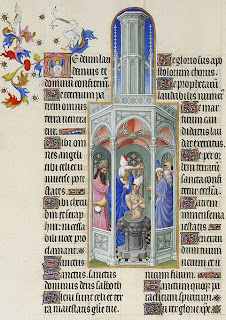 Te deum lau
damus te
dominum confitem
Te eternum pa
trem omnis
terra venera
tur.
Tibi om
nes angeli
tibi celi et u
niuerse po
testates.
Tibi cheru
bim et serap
him incessa
bili uoce pro
clamant.
Sanctus
Sanctus. sanctus
dominus deus sabaoth
Pleni sunt celi et ter
ra maiestatis glorie tue.
Te gloriosus apo
stolorum chorus.
Te prophetarum
laudabilis numer
Te mar
tirum can
didatus lau
dat exercitus.
Te per or
bem terrarum
sancta
confitetur eccl'ia
Patrem
immense ma
iestatis.
Veneran
dum tuum
uerum et u
nicum filium.
Sanctum quoque pa
raclitum spiritum.
Tu rex glorie xpe.